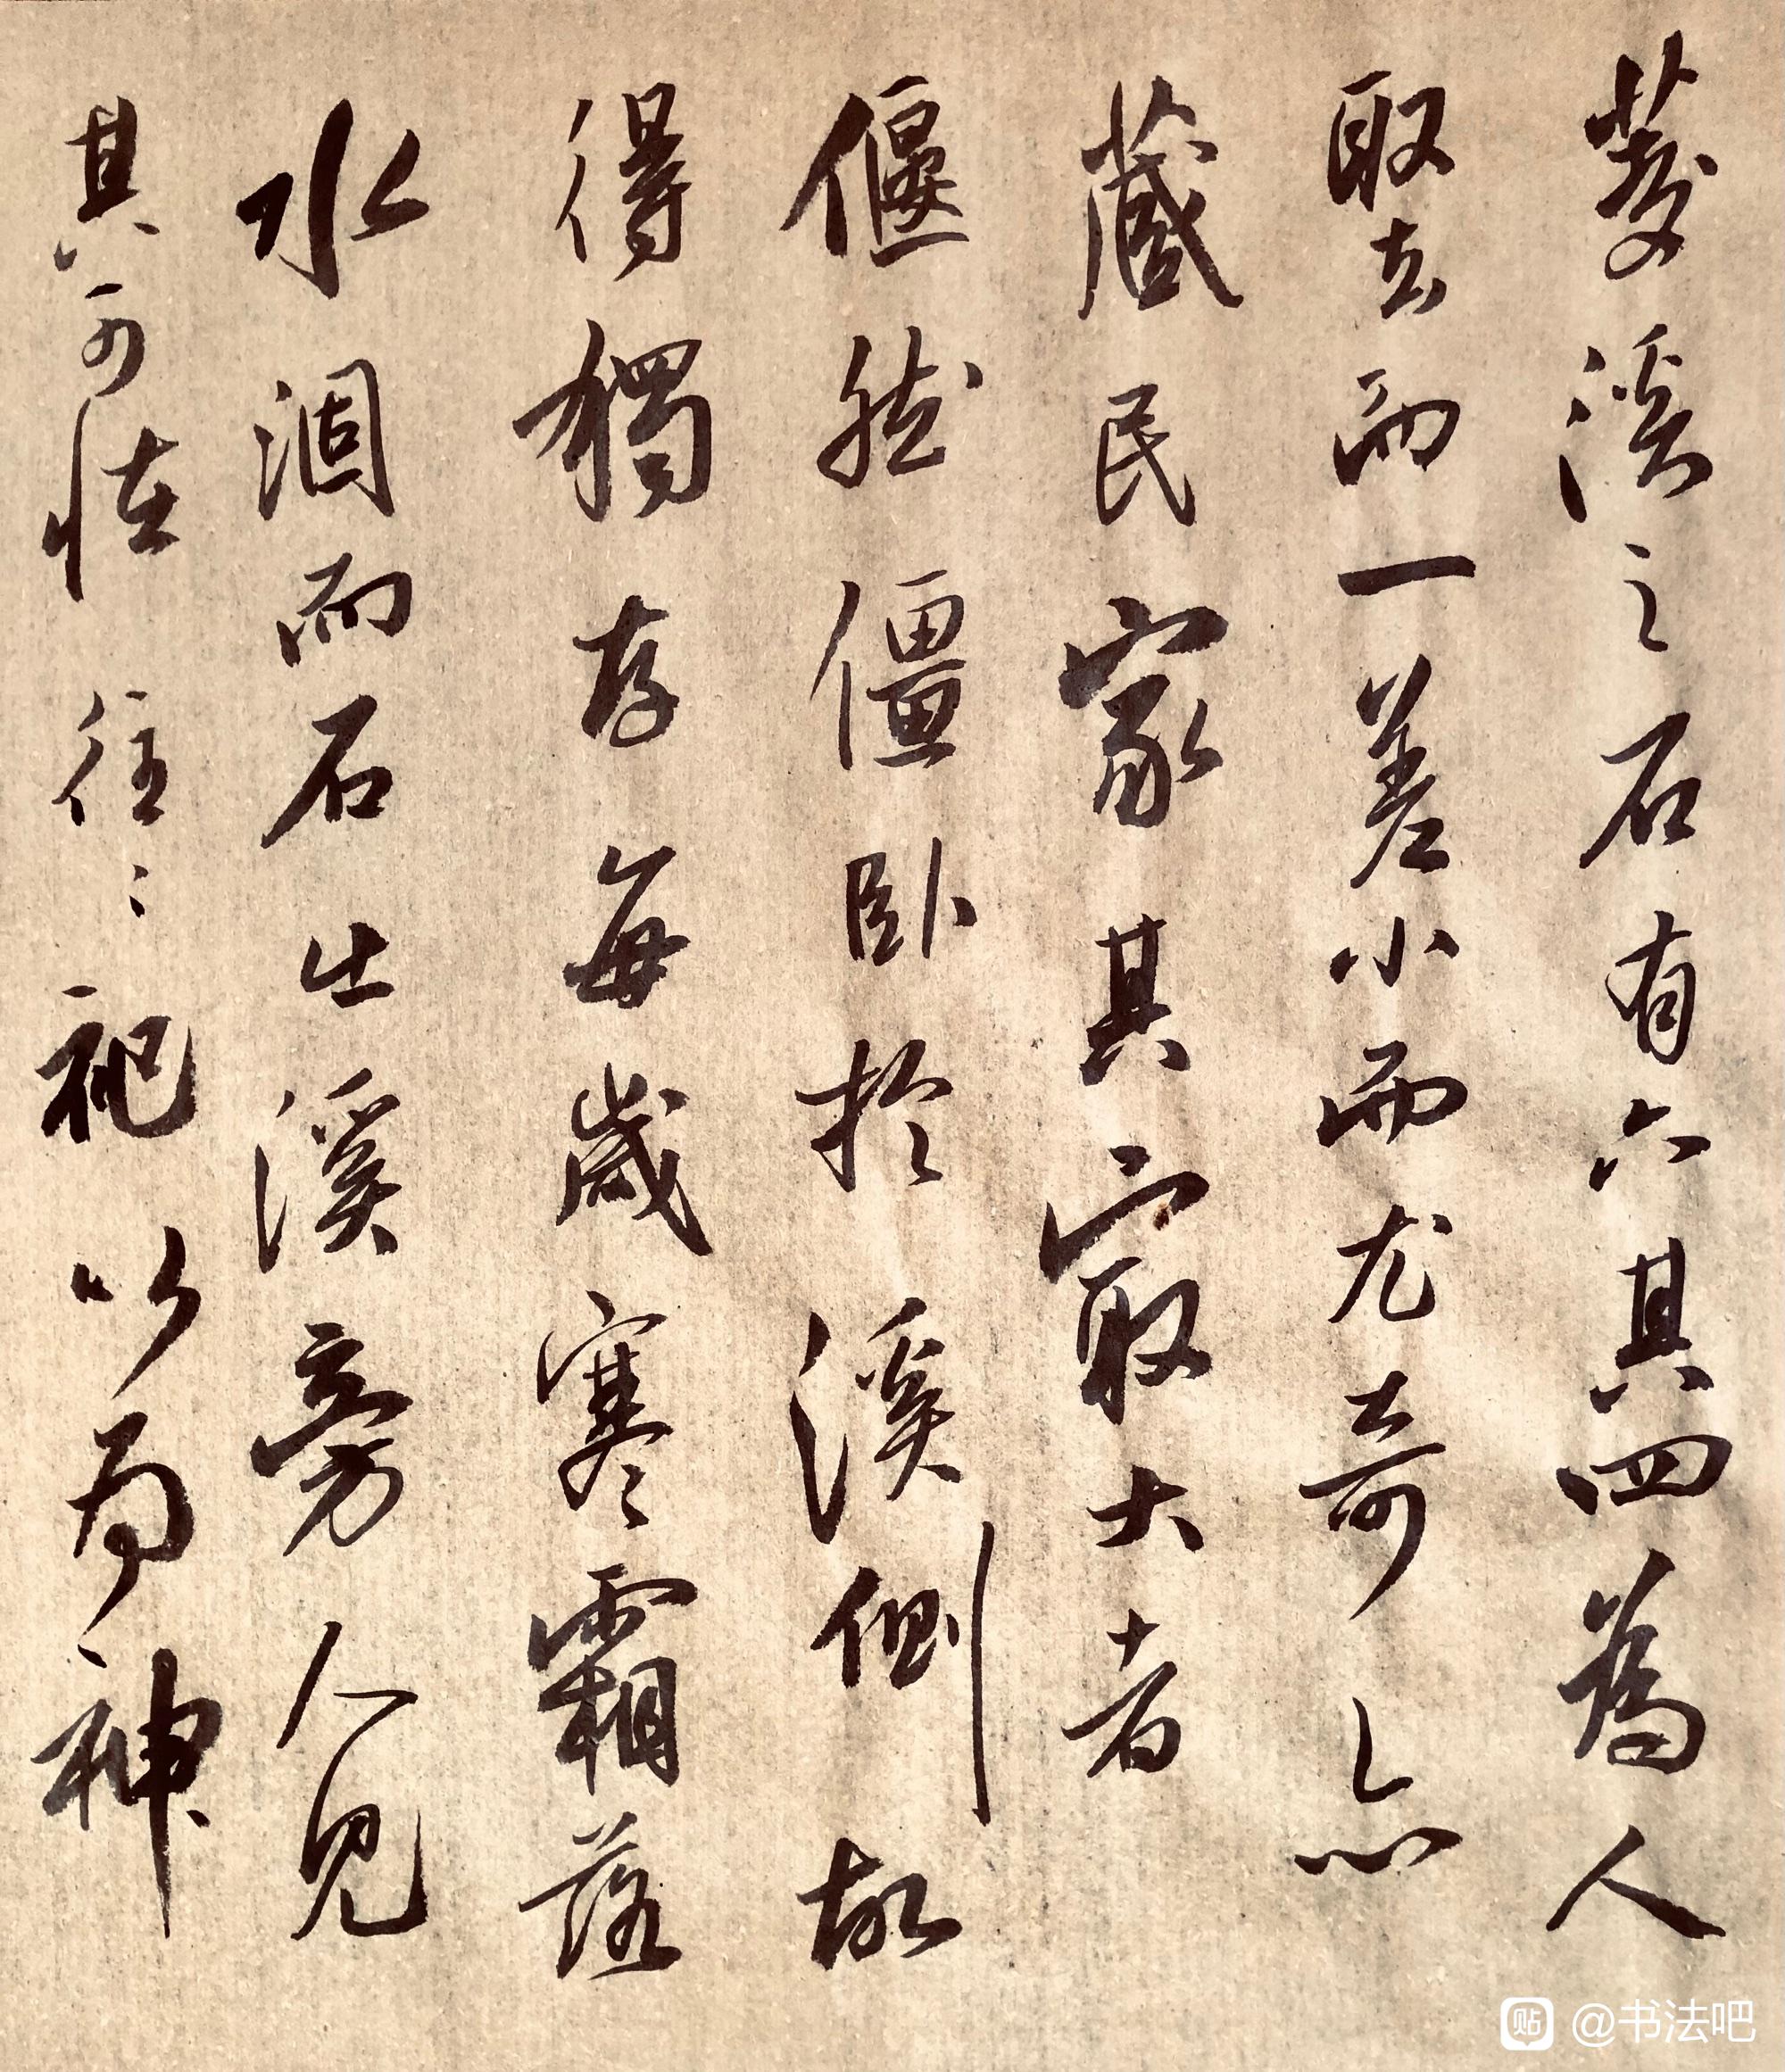 菱溪之石有六其四為人
取去而一差小而尤奇亦
藏民家其㝡大者
偃然僵臥於溪側以
得獨存每歲寒霜落
水涸而石出溪旁人見
其可怪往々祀以為神
贴 @书法吧